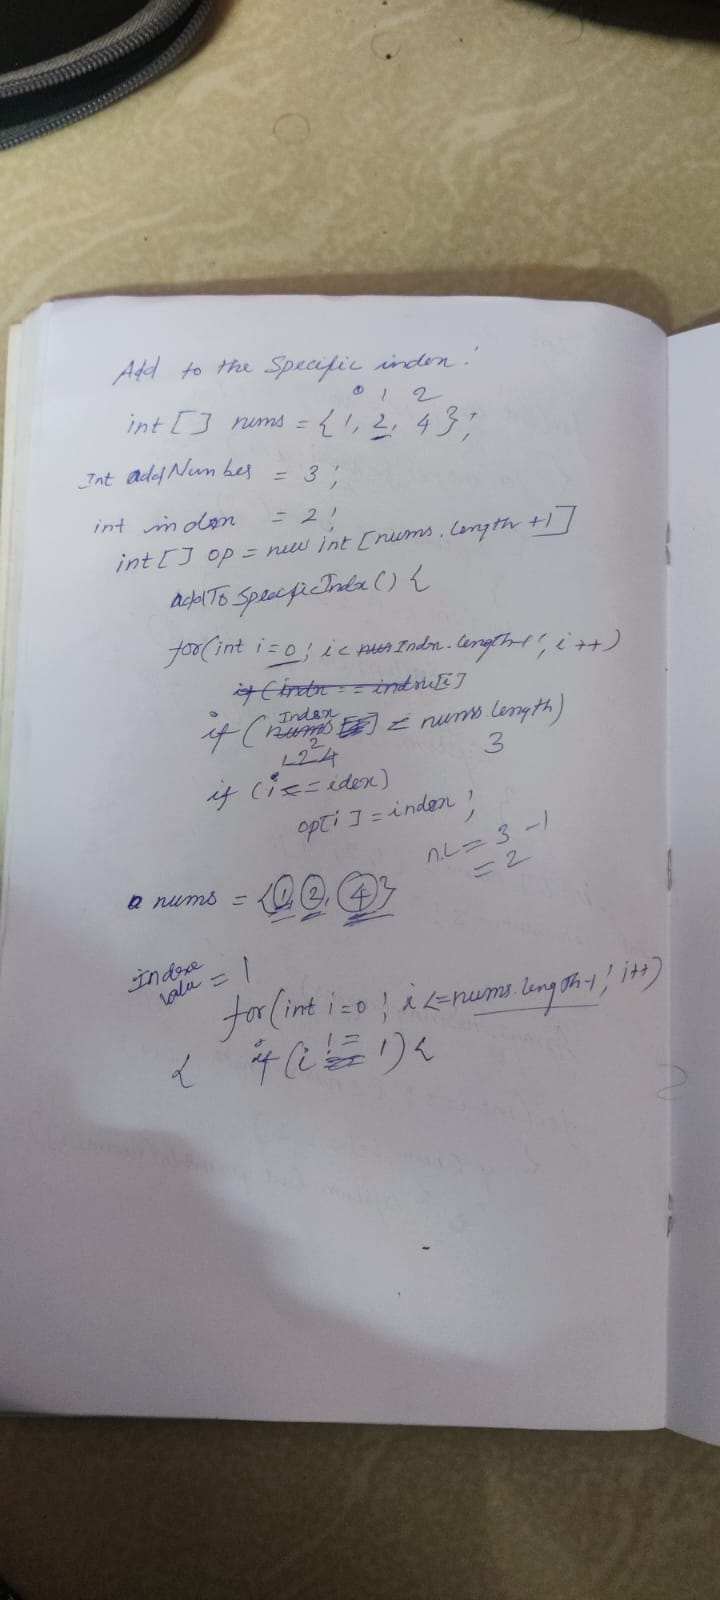 Add to the Specific index:
0 1 2
int [] nums = {1, 2, 4};
Int addNumber = 3;
int index = 2;
int[] op = new int [nums.length +1]
addToSpecficIndx() {
for(int i=0; i< Indx.length-1; i++)
if (indx == index[i]
if (Index ≤ nums.length)
2 3
1 2 4
if (i == idex)
op[i] = index;
n.L = 3 -1
= 2
nums = {1, 2, 4}
Indexe
valu = 1
for(int i=0; i<=nums.length-1; i++)
{ if (i != 1) {